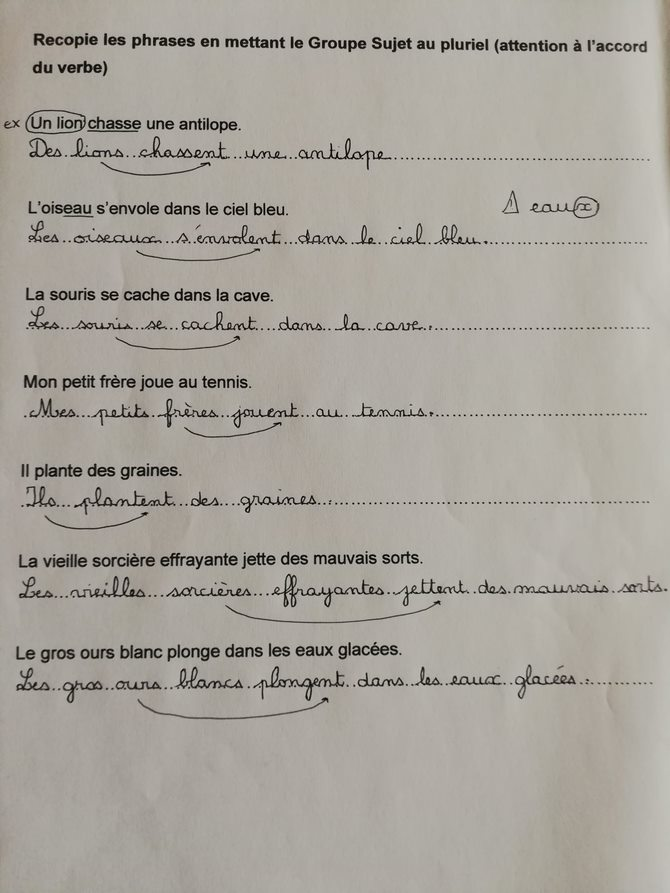 Recopie les phrases en mettant le Groupe Sujet au pluriel (attention à l'accord
du verbe)
ex Un lion chasse une antilope.
Des lions chassent une antilope
L'oiseau s'envole dans le ciel bleu. ⚠ eaux
Les oiseaux s'envolent dans le ciel bleu.
La souris se cache dans la cave.
Les souris se cachent dans la cave.
Mon petit frère joue au tennis.
Mes petits frères jouent au tennis.
Il plante des graines.
Ils plantent des graines.
La vieille sorcière effrayante jette des mauvais sorts.
Les vieilles sorcières effrayantes jettent des mauvais sorts.
Le gros ours blanc plonge dans les eaux glacées.
Les gros ours blancs plongent dans les eaux glacées.